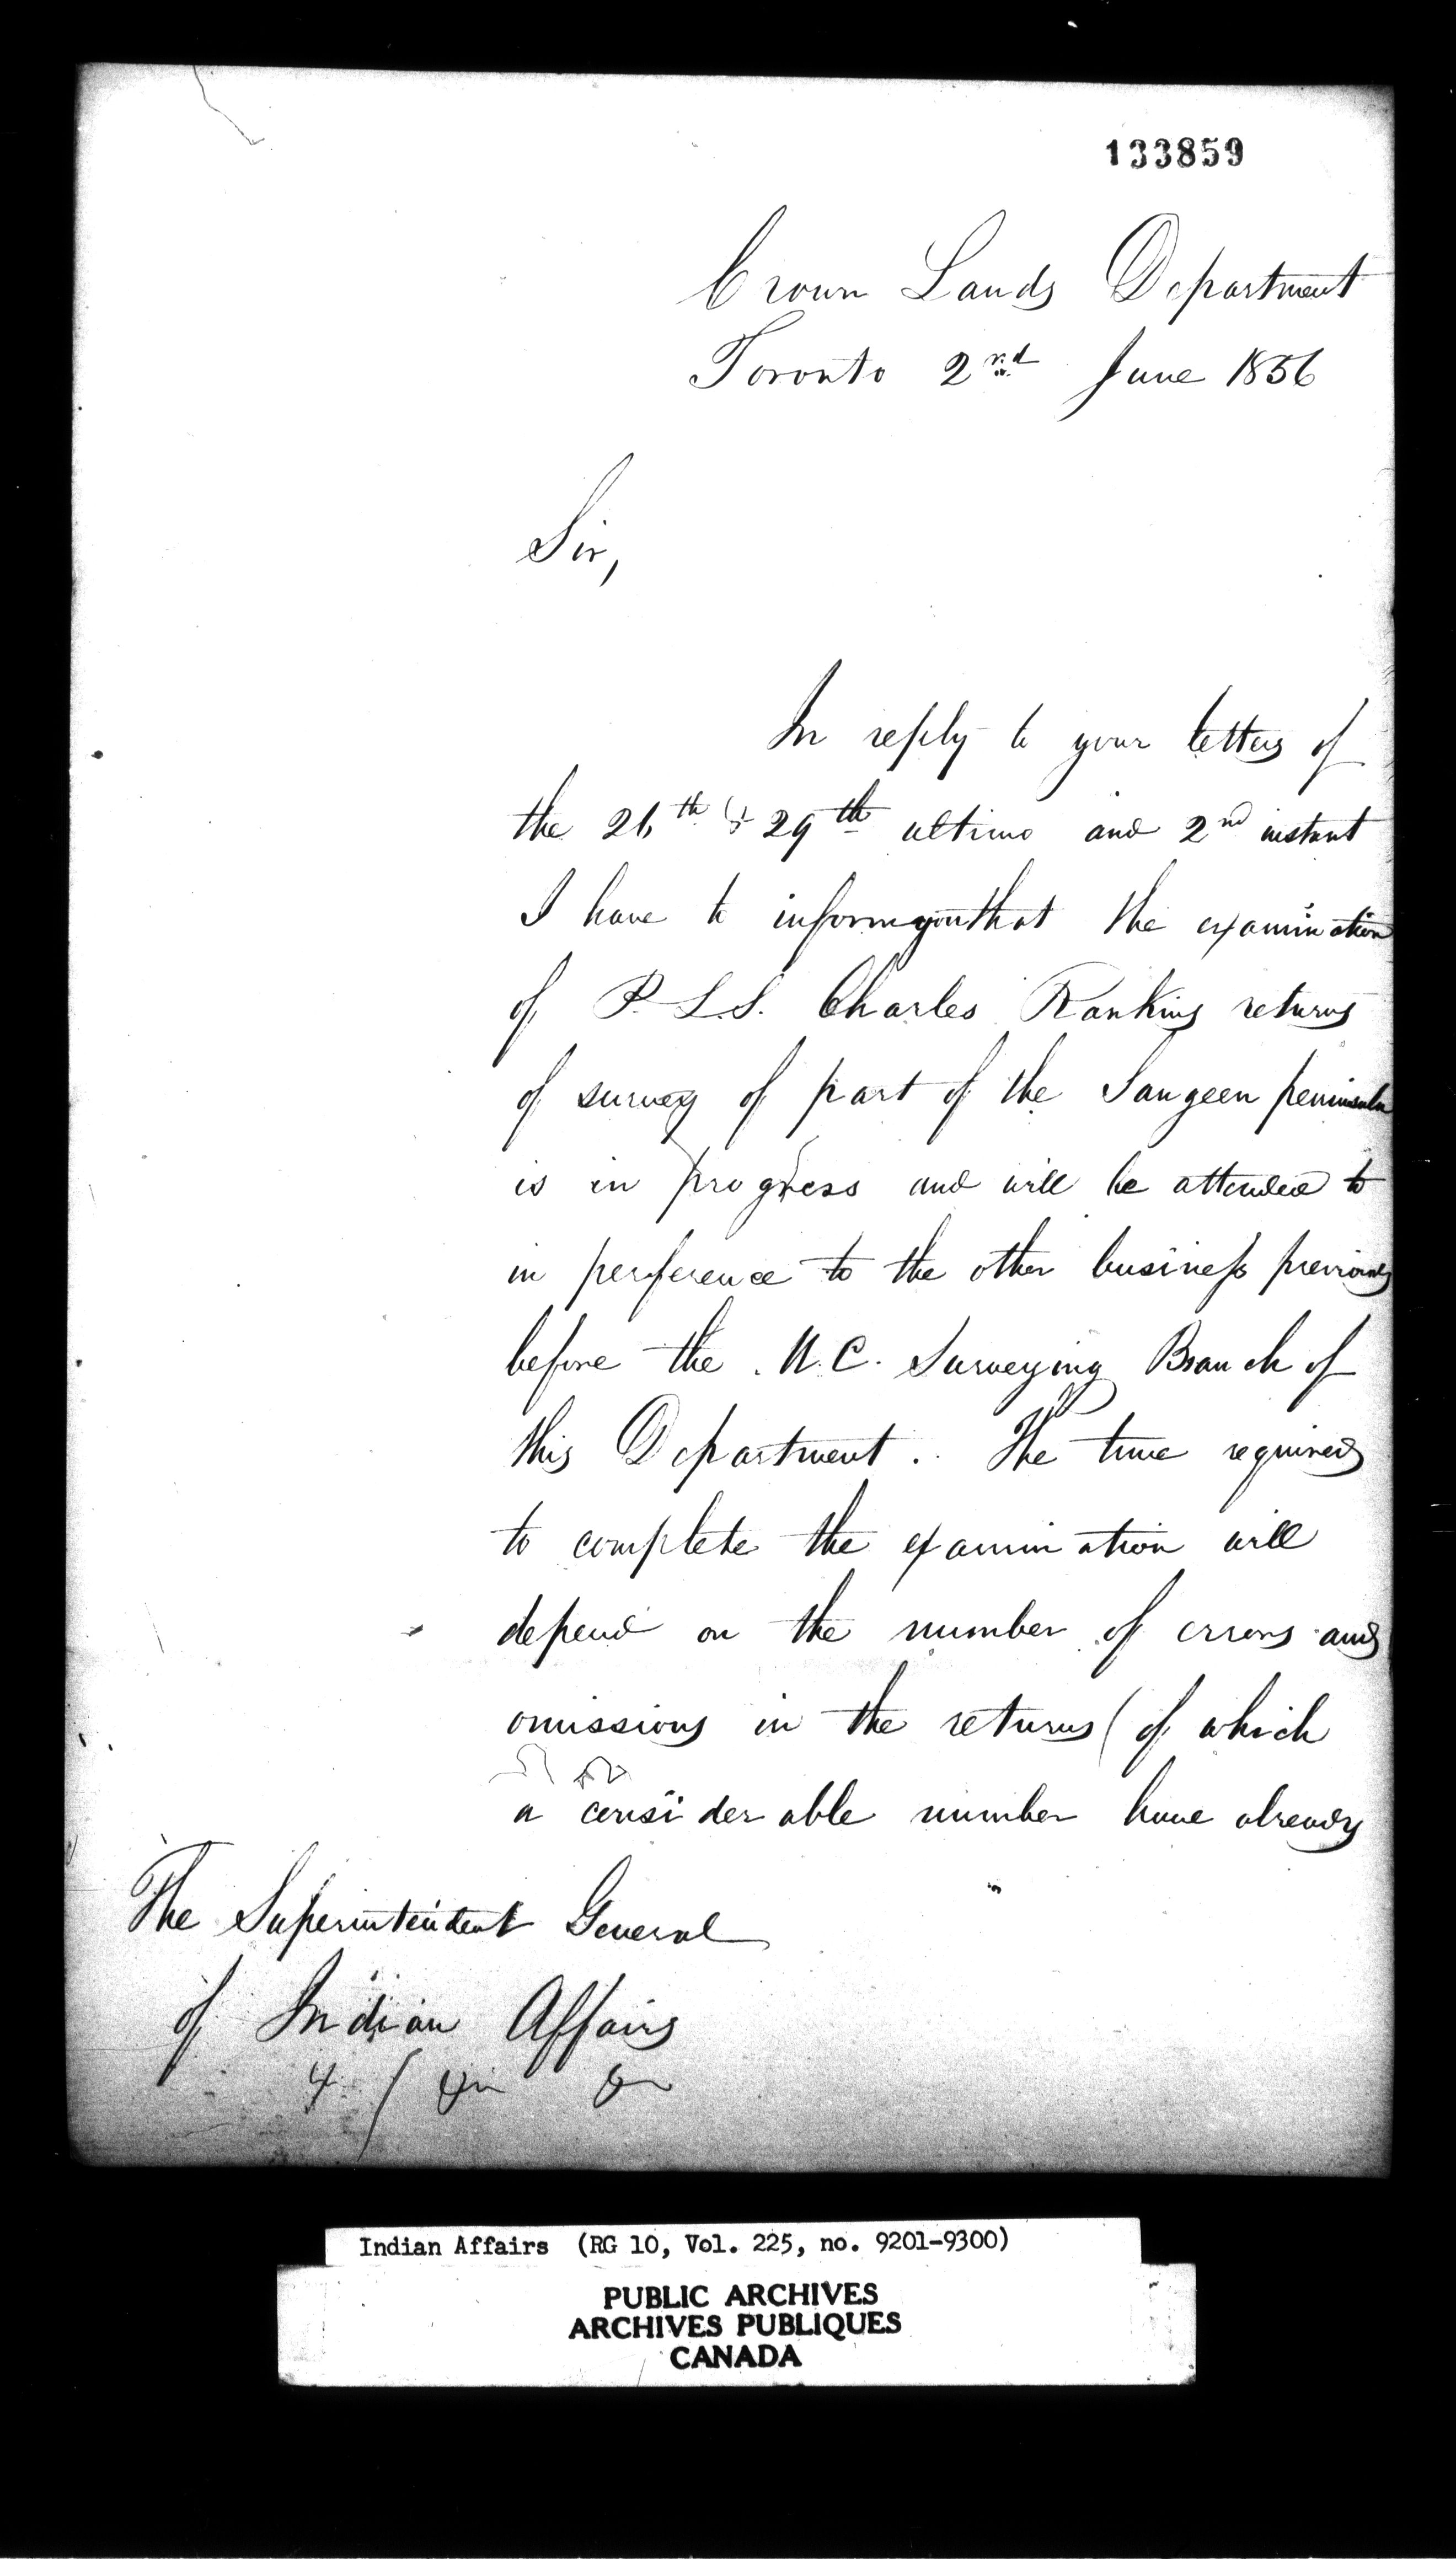 133859
Crown Lands Department
Toronto 2nd June 1856
Sir,
In reply to your letters of
the 26th & 29th ultimo and 2nd instant
I have to inform you that the examination
of P. L. S. Charles Rankins returns
of survey of part of the Saugeen peninsula
is in progress and will be attended to
in perference to the other business previously
before the U. C. Surveying Branch of
this Department. The time required
to complete the examination will
depend on the number of errors and
omissions in the returns (of which
a considerable number have already
The Superintendent General
of Indian Affairs
Indian Affairs (RG 10, Vol. 225, no. 9201-9300)
PUBLIC ARCHIVES
ARCHIVES PUBLIQUES
CANADA